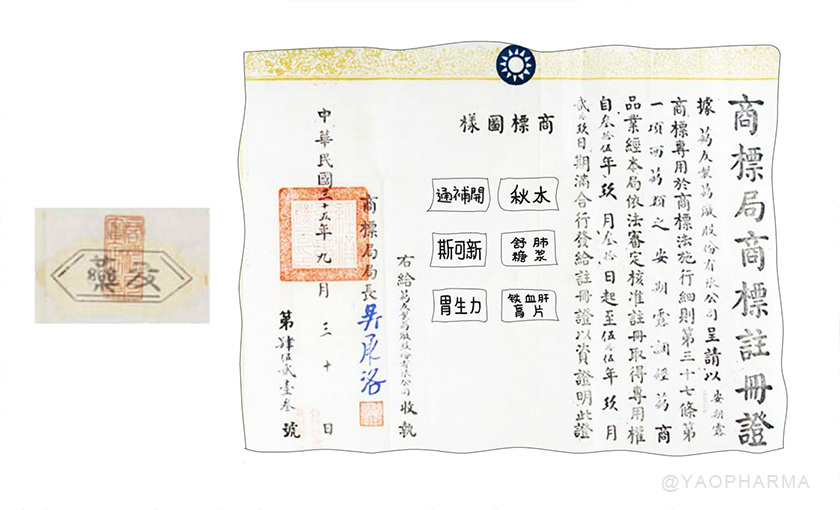 藥友
商標局商標註冊證
據葯友製葯廠股份有限公司呈請以安期露
商標專用於商標法施行細則第三十七條第
一項西葯類之安期露調經葯商
品業經本局依法審定核准註冊取得專用權
自叁拾伍年玖月叁拾日起至伍拾伍年玖月
貳拾玖日期滿合行發給註冊證以資證明此證
商標圖樣
通補開
秋水
斯可新
舒肺
糖浆
胃生力
铁血肝
片
右給葯友製葯廠股份有限公司收執
商標局局長
中華民國三十五年九月三十日
第肆伍貳壹叁號
@YAOPHARMA